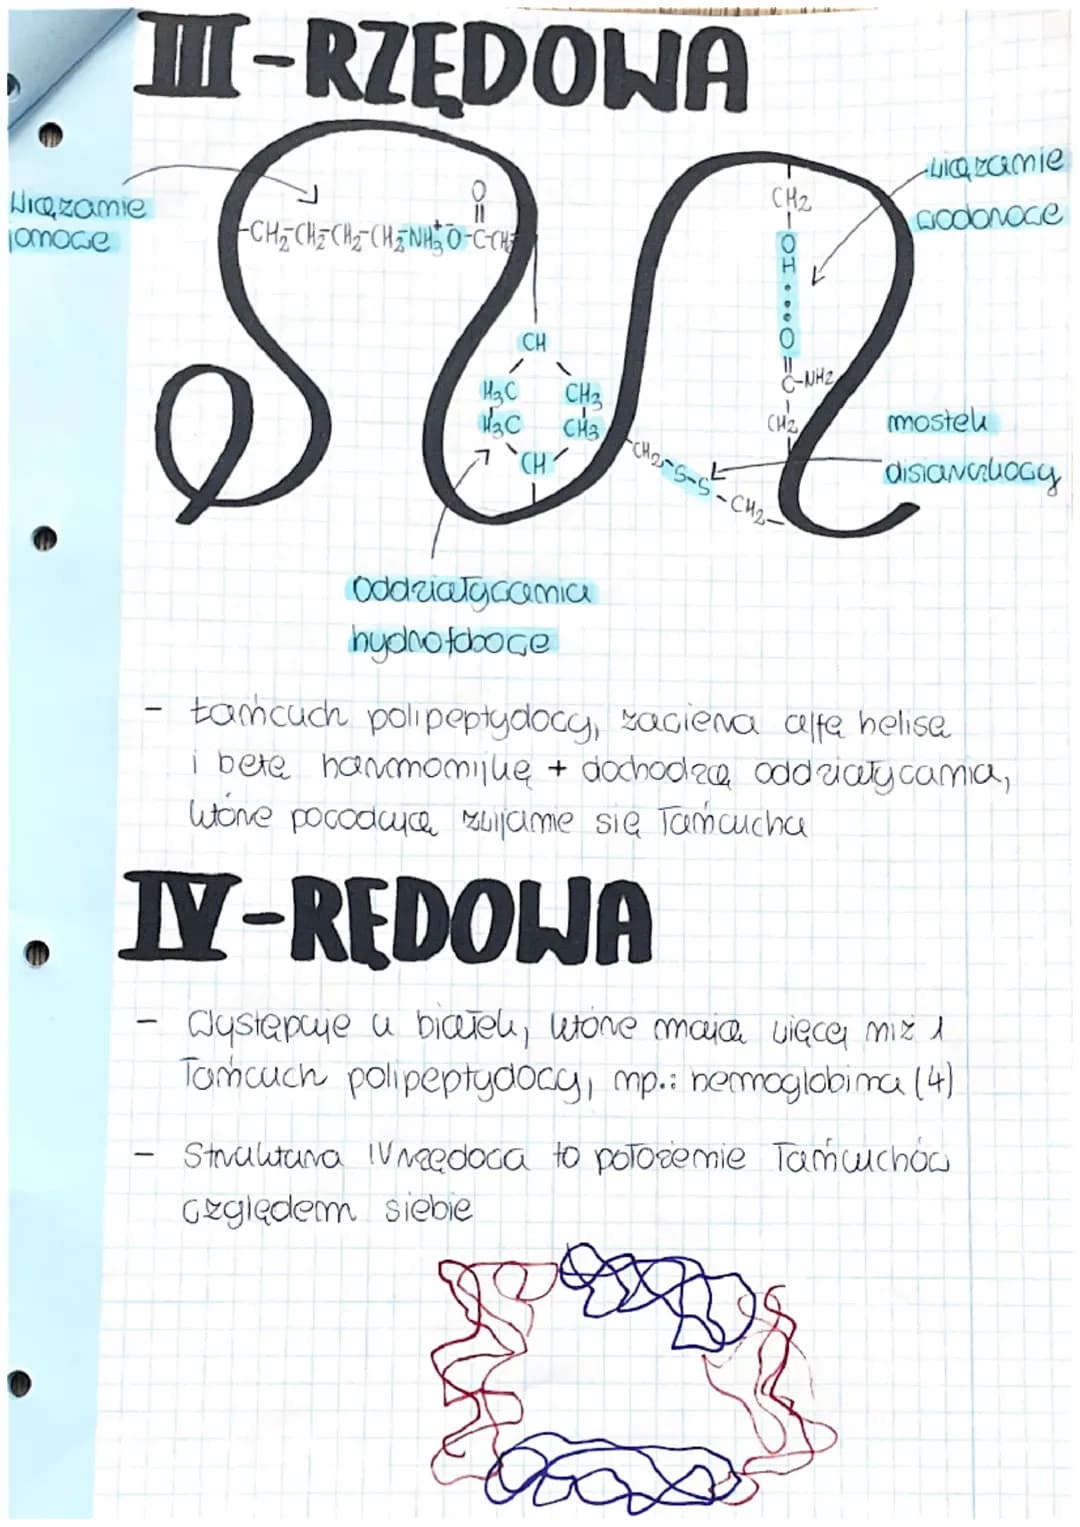 III-RZĘDOWA
wiązanie
jonowe
wiązanie
wodorowe
O
||
-CH₂-CH₂-CH₂-CH₂-NH₃⁺ ⁻O-C-CH₂
CH₂
OH
O
||
C-NH₂
CH₂
CH
H₃C CH₃
H₃C CH₃
CH
CH₂-S-S-CH₂-
mostek
disiarczkowy
oddziaływania
hydrofobowe
- łańcuch polipeptydowy, zawiera alfę helisę
i betę harmonijkę + dochodzą oddziaływania,
które powodują zwijanie się łańcucha
IV-RĘDOWA
- Występuje u białek, które mają więcej niż 1
łańcuch polipeptydowy, np.: hemoglobina (4)
- Struktura IVrzędowa to położenie łańcuchów
względem siebie